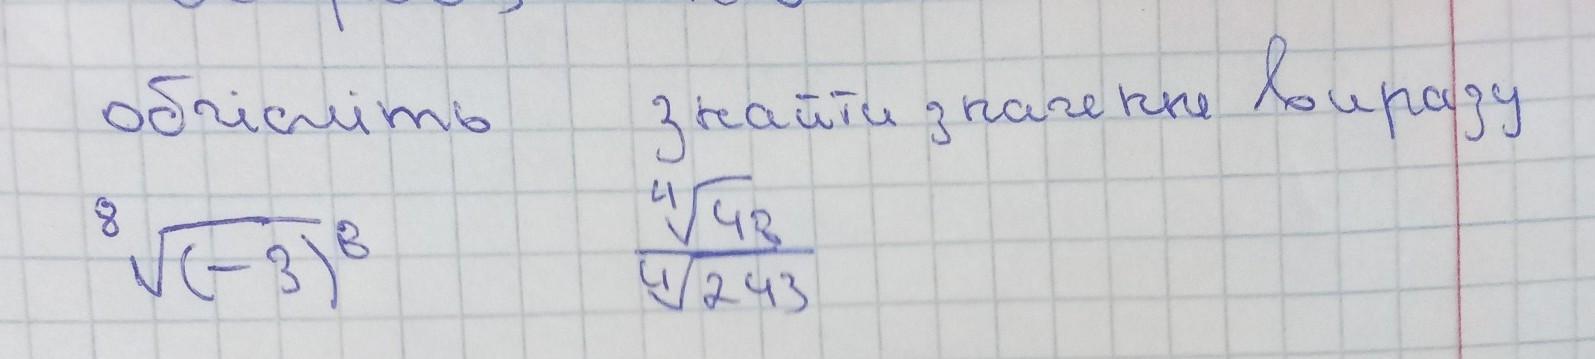 обчісліть знайти значення виразу
⁸√(-3)⁸ ⁴√48 / ⁴√243